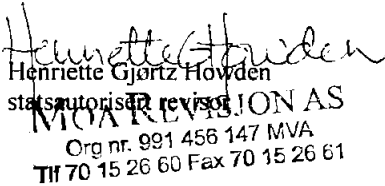 Henriette G Howden
Henriette Gjørtz Howden
statsautorisert revisor
MOA REVISJON AS
Org nr. 991 456 147 MVA
Tlf 70 15 26 60 Fax 70 15 26 61